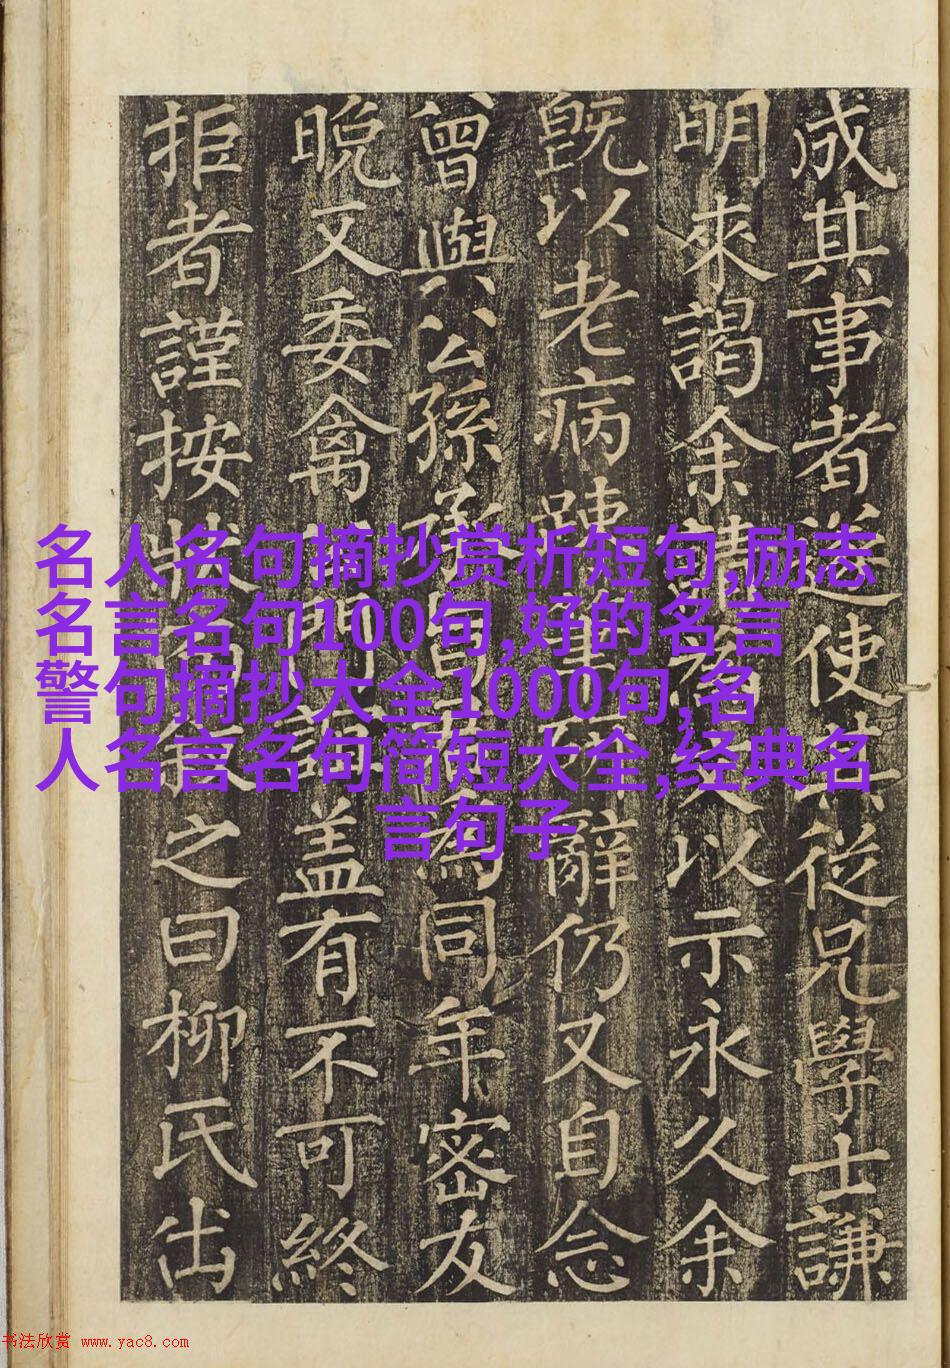 成其事者使從兄學士謙
明來謁余請文以示永久余
既以老病辭仍又自念
曾與公孫為同年密友
晚又委禽盖有不可終
拒者謹按狀之曰柳氏出
名人名句摘抄赏析短句,励志
名言名句100句,好的名言
警句摘抄大全1000句,名
人名言名句简短大全,经典名
言句子
书法欣赏 www.yac8.com